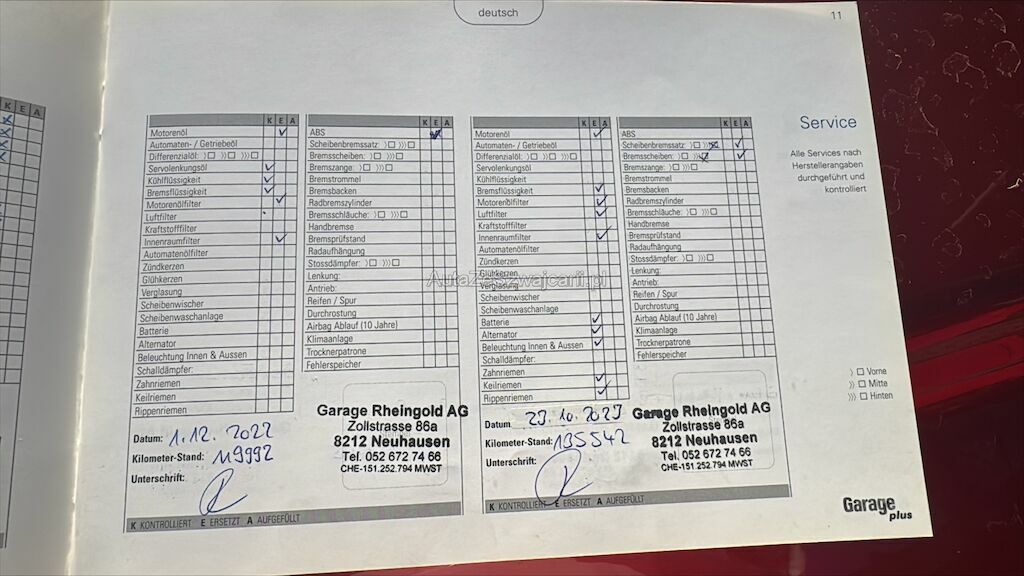 deutsch
11
K E A
K E A
Motorenöl
Automaten- / Getriebeöl
Differenzialöl: 〉 〉〉 〉〉〉
Servolenkungsöl
Kühlflüssigkeit
Bremsflüssigkeit
Motorenölfilter
Luftfilter
Kraftstofffilter
Innenraumfilter
Automatenölfilter
Zündkerzen
Glühkerzen
Verglasung
Scheibenwischer
Scheibenwaschanlage
Batterie
Alternator
Beleuchtung Innen & Aussen
Schalldämpfer:
Zahnriemen
Keilriemen
Rippenriemen
K E A
ABS
Scheibenbremssatz: 〉 〉〉〉
Bremsscheiben: 〉 〉〉〉
Bremszange: 〉 〉〉〉
Bremstrommel
Bremsbacken
Radbremszylinder
Bremsschläuche: 〉 〉〉〉
Handbremse
Bremsprüfstand
Radaufhängung
Stossdämpfer: 〉 〉〉〉
Lenkung:
Antrieb:
Reifen / Spur
Durchrostung
Airbag Ablauf (10 Jahre)
Klimaanlage
Trocknerpatrone
Fehlerspeicher
Datum: 1.12. 2022
Kilometer-Stand: 119992
Unterschrift:
Garage Rheingold AG
Zollstrasse 86a
8212 Neuhausen
Tel. 052 672 74 66
CHE-151.252.794 MWST
K KONTROLLIERT E ERSETZT A AUFGEFÜLLT
K E A
Motorenöl
Automaten- / Getriebeöl
Differenzialöl: 〉 〉〉 〉〉〉
Servolenkungsöl
Kühlflüssigkeit
Bremsflüssigkeit
Motorenölfilter
Luftfilter
Kraftstofffilter
Innenraumfilter
Automatenölfilter
Zündkerzen
Glühkerzen
Verglasung
Scheibenwischer
Scheibenwaschanlage
Batterie
Alternator
Beleuchtung Innen & Aussen
Schalldämpfer:
Zahnriemen
Keilriemen
Rippenriemen
K E A
ABS
Scheibenbremssatz: 〉 〉〉〉
Bremsscheiben: 〉 〉〉〉
Bremszange: 〉 〉〉〉
Bremstrommel
Bremsbacken
Radbremszylinder
Bremsschläuche: 〉 〉〉〉
Handbremse
Bremsprüfstand
Radaufhängung
Stossdämpfer: 〉 〉〉〉
Lenkung:
Antrieb:
Reifen / Spur
Durchrostung
Airbag Ablauf (10 Jahre)
Klimaanlage
Trocknerpatrone
Fehlerspeicher
Datum 23.10.2023
Kilometer-Stand: 135542
Unterschrift:
Garage Rheingold AG
Zollstrasse 86a
8212 Neuhausen
Tel. 052 672 74 66
CHE-151.252.794 MWST
K KONTROLLIERT E ERSETZT A AUFGEFÜLLT
Service
Alle Services nach
Herstellerangaben
durchgeführt und
kontrolliert
〉 Vorne
〉〉 Mitte
〉〉〉 Hinten
Garage plus
AutaZeSzwajcarii.pl